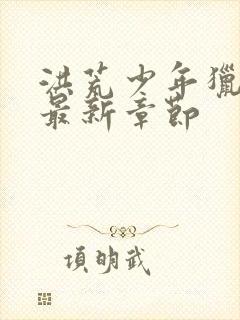 洪荒少年獵
最新章節
項明武